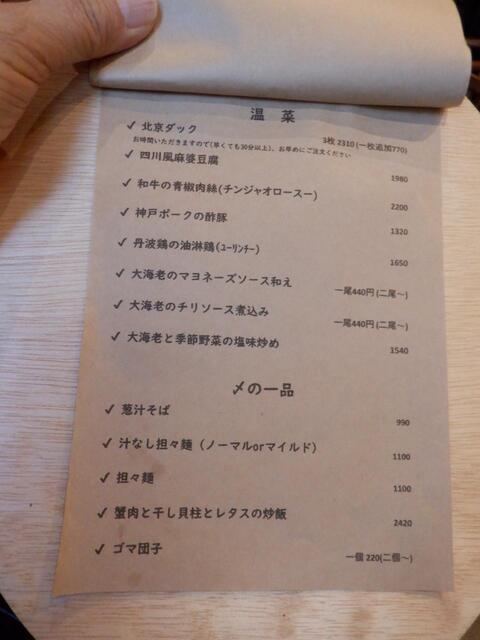 温 菜
✓ 北京ダック 3枚 2310 (一枚追加770)
お時間いただきますので(早くても30分以上)、お早めにご注文ください
✓ 四川風麻婆豆腐 1980
✓ 和牛の青椒肉絲(チンジャオロースー) 2200
✓ 神戸ポークの酢豚 1320
✓ 丹波鶏の油淋鶏(ﾕｰﾘﾝﾁｰ) 1650
✓ 大海老のマヨネーズソース和え 一尾440円 (二尾～)
✓ 大海老のチリソース煮込み 一尾440円 (二尾～)
✓ 大海老と季節野菜の塩味炒め 1540
〆の一品
✓ 葱汁そば 990
✓ 汁なし担々麺（ノーマルorマイルド） 1100
✓ 担々麺 1100
✓ 蟹肉と干し貝柱とレタスの炒飯 2420
✓ ゴマ団子 一個 220(二個～)